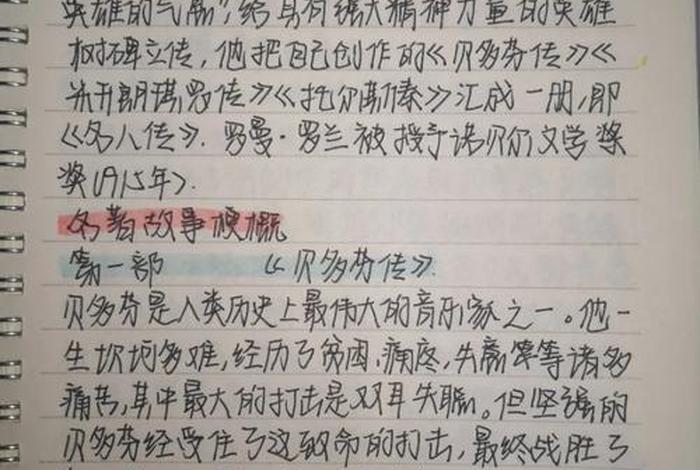 英雄的气息",给具有强大精神力量的英雄
树碑立传,他把自己创作的《贝多芬传》《
米开朗琪罗传》《托尔斯泰》汇成一册,即
《名人传》.罗曼·罗兰被授予诺贝尔文学奖
奖(1915年).
名著故事梗概
第一部 《贝多芬传》
贝多芬是人类历史上最伟大的音乐家之一。他一
生坎坷多难,经历了贫困,病疼,失离等诸多
痛苦,其中最大的打击是双耳失聪。但坚强的
贝多芬经受住了这致命的打击,最终战胜了